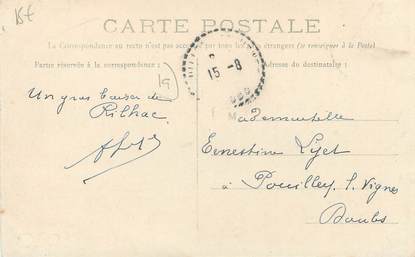 CARTE POSTALE
La Correspondance au recto n'est pas acceptée par tous les pays étrangers (se renseigner à la Poste)
Partie réservée à la correspondance :
Adresse du destinataire :
15-8
Un gros baiser de
Rilhac
Mademoiselle
Ernestine
à Pouilley s. Vignes
Doubs